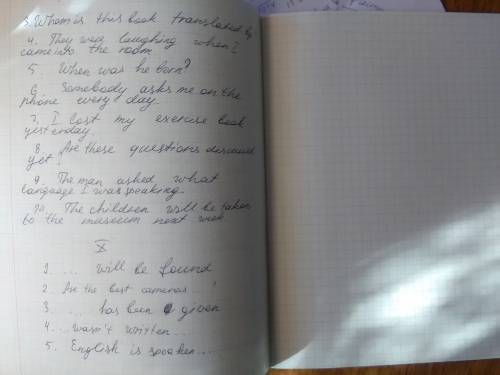 3. Whom is this book translated by
4. They were laughing when I
came into the room
5. When was he born?
6. Somebody asks me on the
phone every day
7. I lost my exercise book
yesterday.
8. Are these questions discussed
yet?
9. The man asked what
language I was speaking.
10. The children will be taken
to the museum next week
X
1. ... will be found
2. Are the best cameras ...?
3. ... has been given
4. ... wasn't written ...
5. English is spoken ...